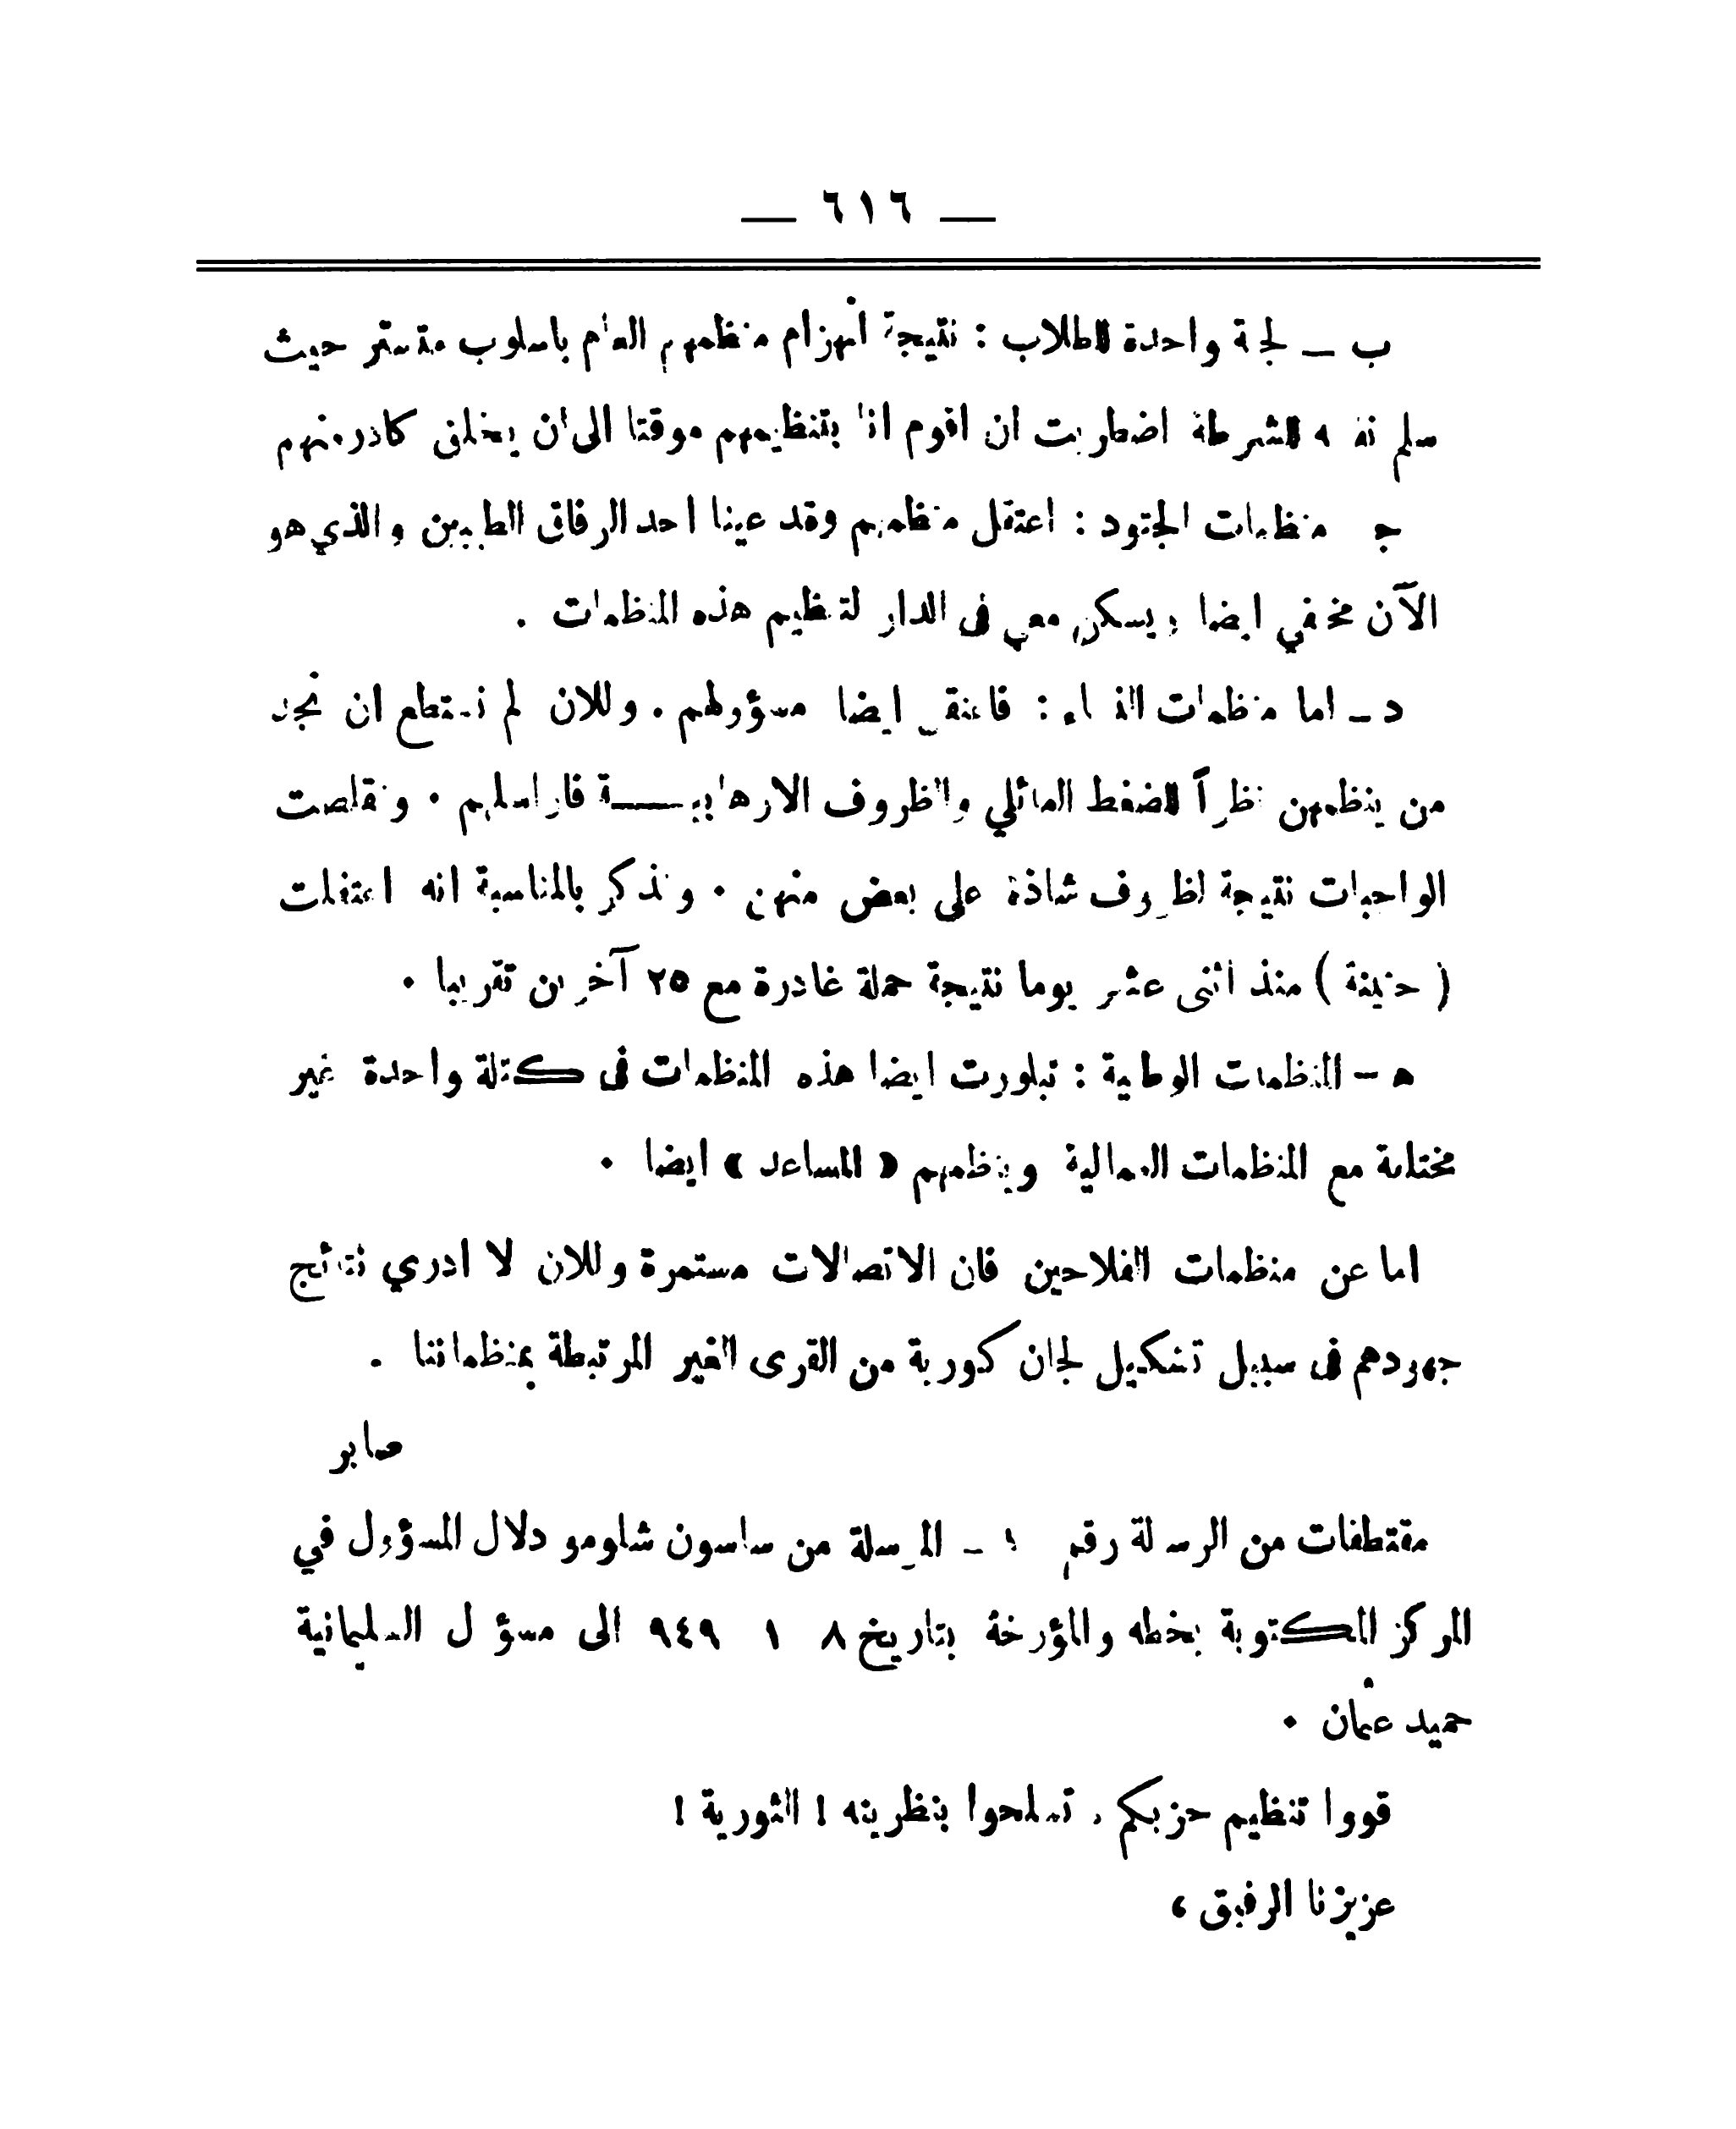 — ٦١٦ —
ب — لجنة واحدة للطلاب : نتيجة انهزام منظمهم العام باسلوب متستر حيث
سلم نفسه للشرطة اضطررت ان اقوم انا بتنظيمهم موقتا الى ان يخلق كادر منهم
ج منظمات الجنود : اعتقل منظمهم وقد عينا احد الرفاق الطيبين والذي هو
الآن مختفي ايضا ويسكن معي في الدار لتنظيم هذه المنظمات .
د - اما منظمات النساء : فاعتقل ايضا مسؤولهم . وللان لم نستطع ان نجد
من ينظمهن نظراً للضغط العائلي والظروف الارهابيــة فاراسلهم . وتقلصت
الواجبات نتيجة لظروف شاذة على بعض منهن . ونذكر بالمناسبة انه اعتقلت
( حزينة ) منذ اثنى عشر يوما نتيجة حملة غادرة مع ٢٥ آخرين تقريبا .
ه - المنظمات الوطنية : تبلورت ايضا هذه المنظمات في كتلة واحدة غير
مختلطة مع المنظمات العمالية وينظمهم « المساعد » ايضا .
اما عن منظمات الفلاحين فان الاتصالات مستمرة وللان لا ادري نتائج
جهودهم في سبيل تشكيل لجان كورية من القرى الغير المرتبطة بمنظماتنا .
صابر
مقتطفات من الرسالة رقم - المرسلة من ساسون شلومو دلال المسؤول في
المركز المكتوبة بخطه والمؤرخة بتاريخ ٨ ١ ٩٤٩ الى مسؤول السليمانية
حميد عثمان .
قووا تنظيم حزبكم . تسلحوا بنظريته ! الثورية !
عزيزنا الرفيق ،